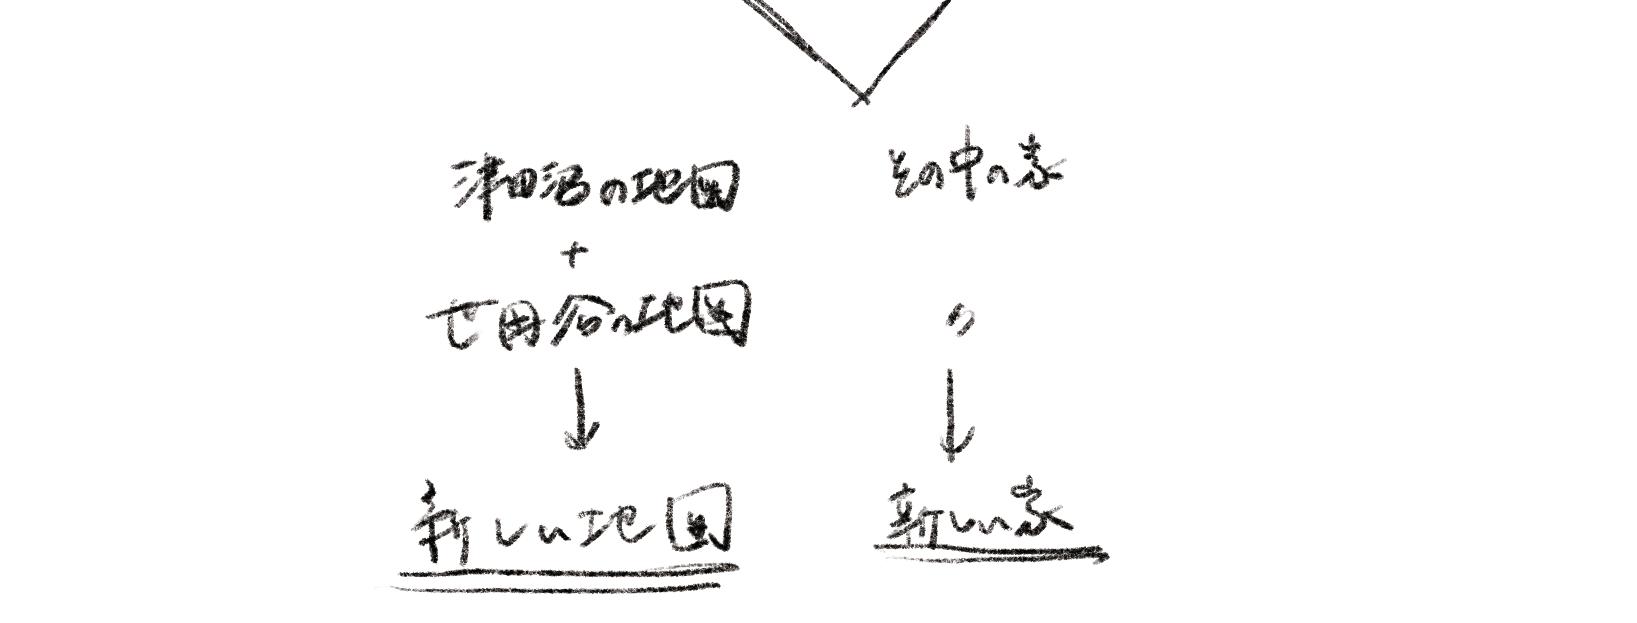 津田沼の地図 その中の家
+
世田谷の地図 〃
↓ ↓
新しい地図 新しい家